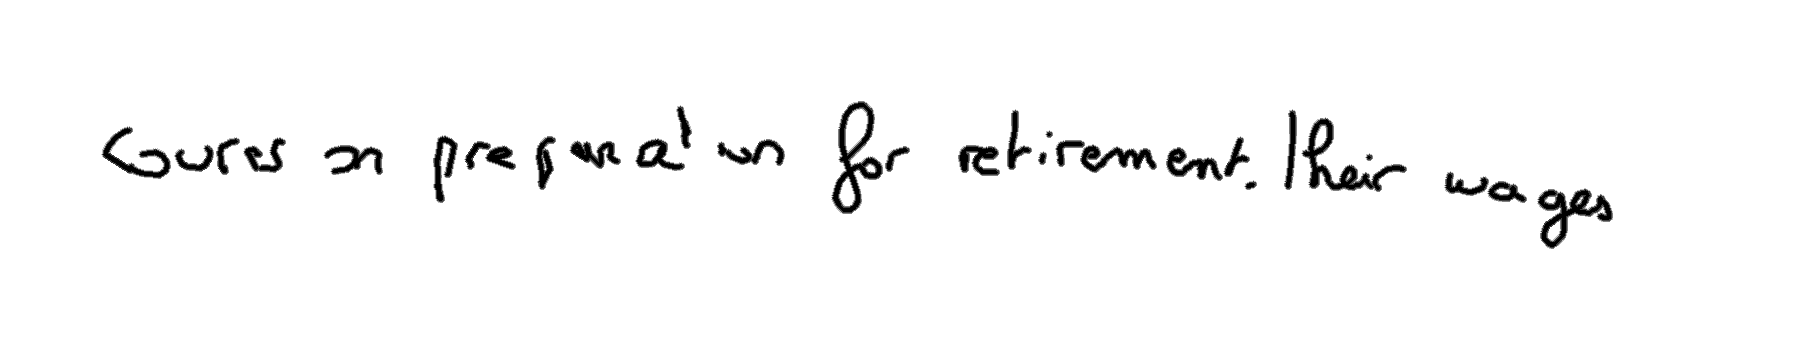 courses in preparation for retirement. Their wages